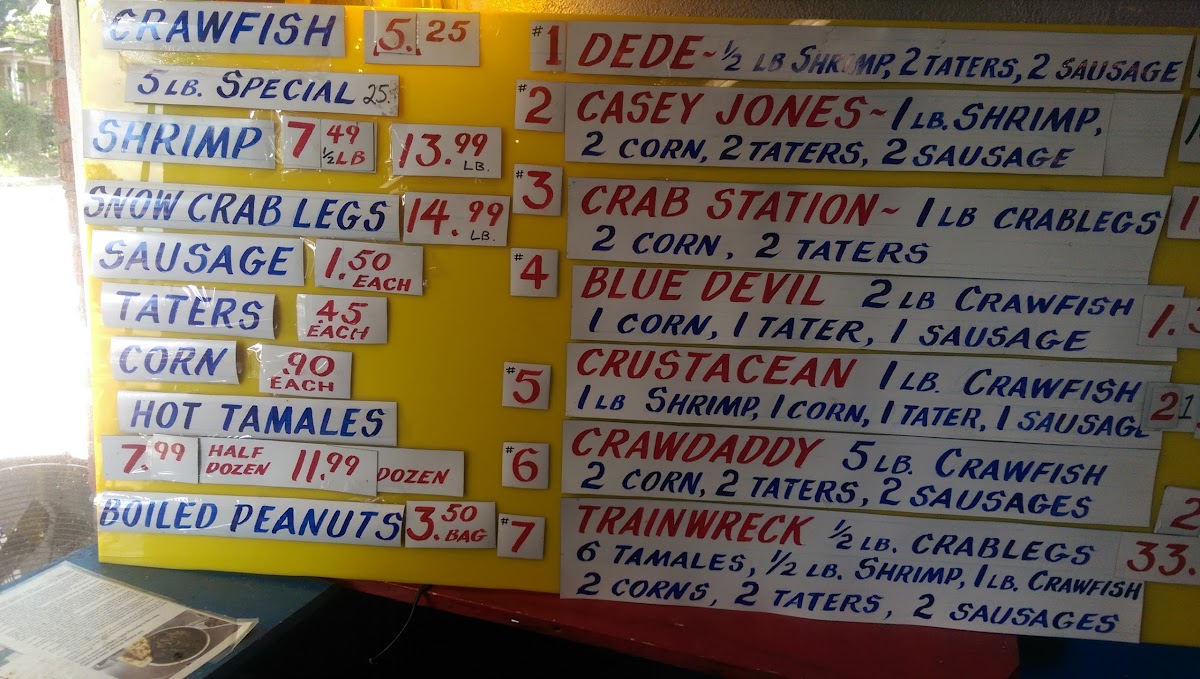 CRAWFISH 5.25
5 LB. SPECIAL 25.
SHRIMP 7.49 ½ LB 13.99 LB.
SNOW CRAB LEGS 14.99 LB.
SAUSAGE 1.50 EACH
TATERS .45 EACH
CORN .90 EACH
HOT TAMALES
7.99 HALF DOZEN 11.99 DOZEN
BOILED PEANUTS 3.50 BAG
#1 DEDE~ ½ LB SHRIMP, 2 TATERS, 2 SAUSAGE
#2 CASEY JONES~ 1 LB. SHRIMP,
2 CORN, 2 TATERS, 2 SAUSAGE
#3 CRAB STATION~ 1 LB CRABLEGS
2 CORN, 2 TATERS
#4 BLUE DEVIL 2 LB CRAWFISH
1 CORN, 1 TATER, 1 SAUSAGE
#5 CRUSTACEAN 1 LB. CRAWFISH
1 LB SHRIMP, 1 CORN, 1 TATER, 1 SAUSAGE
#6 CRAWDADDY 5 LB. CRAWFISH
2 CORN, 2 TATERS, 2 SAUSAGES
#7 TRAINWRECK ½ LB. CRABLEGS 33.
6 TAMALES, ½ LB. SHRIMP, 1 LB. CRAWFISH
2 CORNS, 2 TATERS, 2 SAUSAGES